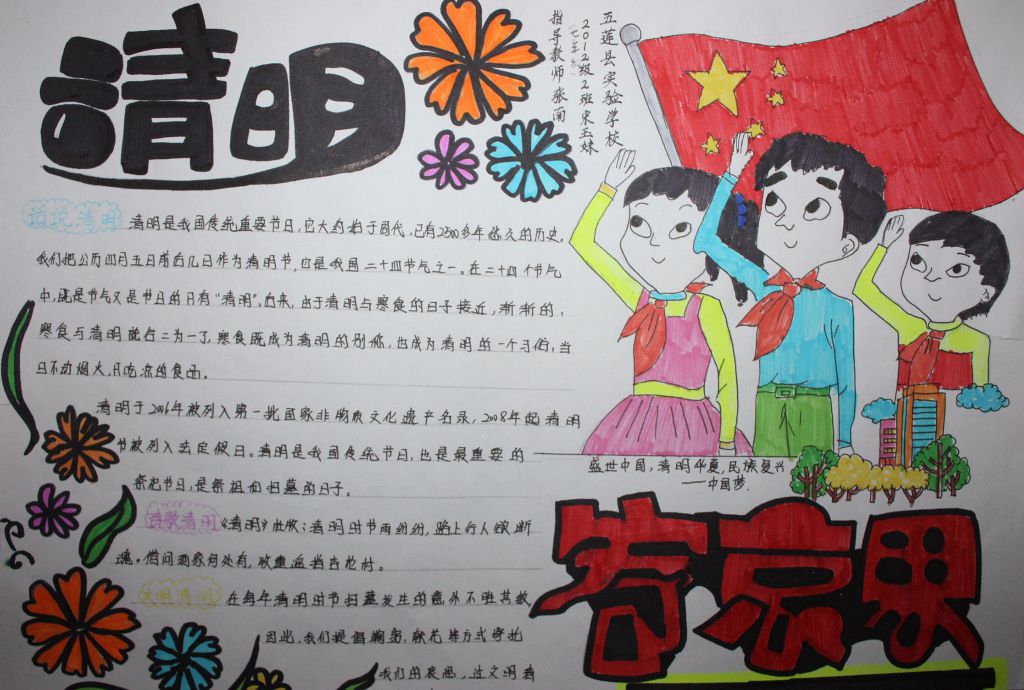 清明
五莲县实验学校
2012级2班宋玉姝
(七年级)
指导教师 张南
话说清明
清明是我国传统重要节日,它大约始于周代,已有2500多年悠久的历史,
我们把公历四月五日前后几日作为清明节,也是我国二十四节气之一。在二十四个节气
中,既是节气又是节日的只有“清明”。后来,由于清明与寒食的日子接近,渐渐的,
寒食与清明就合二为一了,寒食既成为清明的别称,也成为清明的一个习俗,当
日不动烟火,只吃凉的食品。
清明于2006年被列入第一批国家非物质文化遗产名录,2008年起清明
节被列入法定假日。清明是我国传统节日,也是最重要的
祭祀节日,是祭祖和扫墓的日子。
诗歌清明
《清明》杜牧:清明时节雨纷纷,路上行人欲断
魂。借问酒家何处有,牧童遥指杏花村。
文明清明
在每年清明时节扫墓发生的意外不胜其数
因此,我们提倡鞠躬、献花等方式寄托
我们的哀思,过文明清
盛世中国,清明华夏,民族复兴
——中国梦.